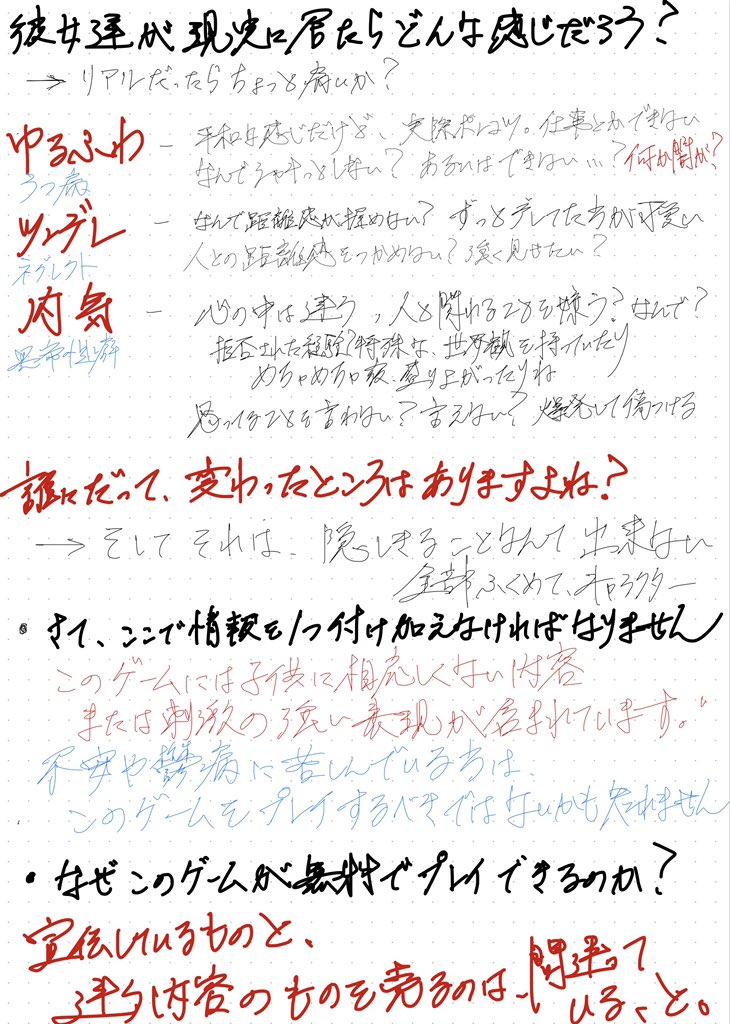 彼女達が現実に居たらどんな感じだろう?
→ リアルだったらちょっと痛いか?
ゆるふわ - 平和な感じだけど、実際ポンコツ。仕事とかできない
うつ病 なんでシャキッとしない? あるいはできない…? 何か闇が?
ツンデレ - なんで距離感が掴めない? ずっとデレてた方が可愛い
ネグレクト 人との距離感をつかめない? 強く見せたい?
内気 - 心の中は違う、人と関わることを嫌う? なんで?
異常性癖 拒否された経験? 特殊な、世界観を持っていたり
めちゃめちゃ夜、盛り上がったりね
思ってることを言わない? 言えない? 爆発して傷つける
誰にだって、変わったところはありますよね?
→ そして それは、隠しきることなんて出来ない
全部ふくめて、キャラクター
• さて、ここで情報を1つ付け加えなければなりません
このゲームには子供に相応しくない内容
または刺激の強い表現が含まれています。"
不安や鬱病に苦しんでいる方は、
このゲームをプレイするべきではないかも知れません
• なぜこのゲームが無料でプレイできるのか?
宣伝しているものと、
違う内容のものを売るのは、間違っていること。